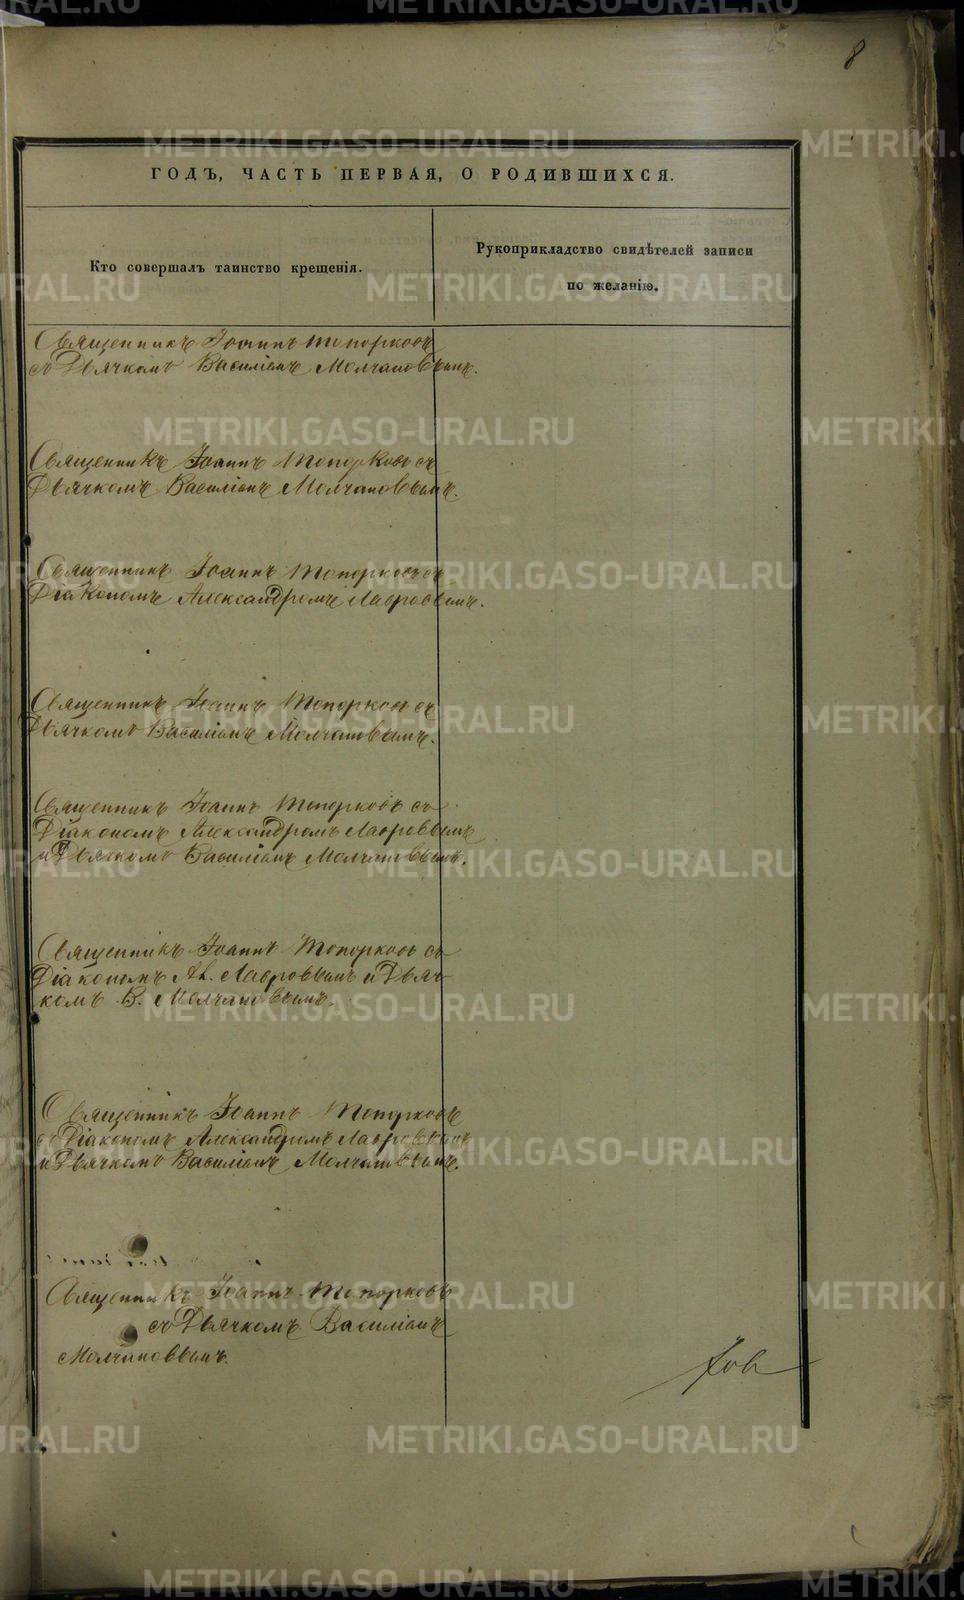 8
ГОДЪ, ЧАСТЬ ПЕРВАЯ, О РОДИВШИХСЯ.
Кто совершалъ таинство крещенія.
Рукоприкладство свидѣтелей записи
по желанію.
Священникъ Іоаннъ Топорковъ
съ Дьячкомъ Василіемъ Молчановымъ.
Священникъ Іоаннъ Топорковъ съ
Дьячкомъ Василіемъ Молчановымъ.
Священникъ Іоаннъ Топорковъ съ
Діакономъ Александромъ Лавровымъ.
Священникъ Іоаннъ Топорковъ съ
Дьячкомъ Василіемъ Молчановымъ.
Священникъ Іоаннъ Топорковъ съ
Діакономъ Александромъ Лавровымъ
и Дьячкомъ Василіемъ Молчановымъ.
Священникъ Іоаннъ Топорковъ съ
Діакономъ Ал. Лавровымъ и Дьяч-
комъ В. Молчановымъ.
Священникъ Іоаннъ Топорковъ
съ Діакономъ Александромъ Лавровымъ
и Дьячкомъ Василіемъ Молчановымъ.
Священникъ Іоаннъ Топорковъ
съ Дьячкомъ Василіемъ
Молчановымъ.
METRIKI.GASO-URAL.RU